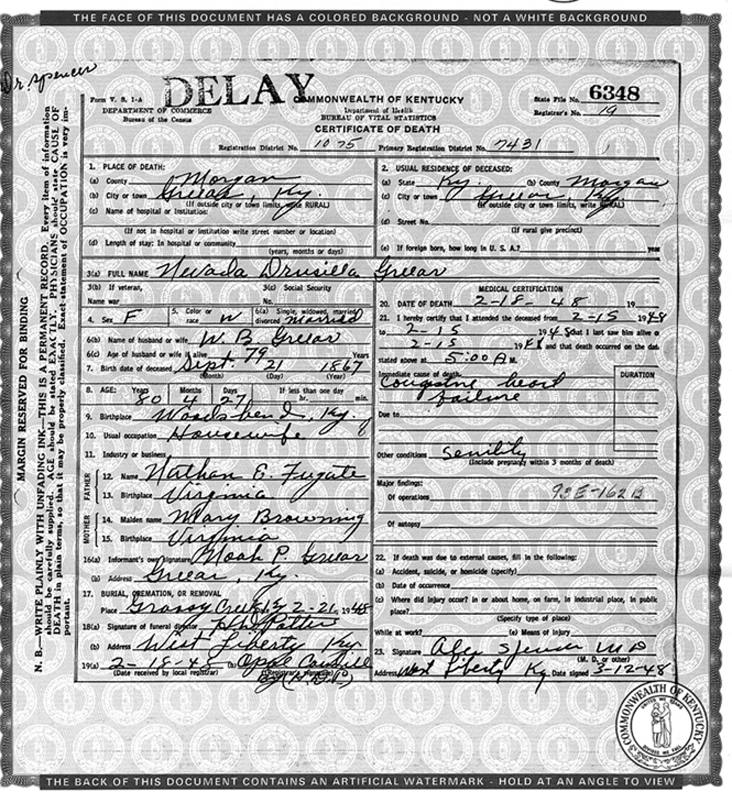 THE FACE OF THIS DOCUMENT HAS A COLORED BACKGROUND - NOT A WHITE BACKGROUND
Dr. Spencer
DELAY
Form V. S. 1-A
DEPARTMENT OF COMMERCE
Bureau of the Census
COMMONWEALTH OF KENTUCKY
Department of Health
BUREAU OF VITAL STATISTICS
CERTIFICATE OF DEATH
State File No. 6348
Registrar's No. 19
Registration District No. 1075 Primary Registration District No. 7431
MARGIN RESERVED FOR BINDING
N. B.—WRITE PLAINLY WITH UNFADING INK—THIS IS A PERMANENT RECORD. Every item of information
should be carefully supplied. AGE should be stated EXACTLY. PHYSICIANS should state CAUSE OF
DEATH in plain terms, so that it may be properly classified. Exact statement of OCCUPATION is very im-
portant.
1. PLACE OF DEATH:
(a) County Morgan
(b) City or town Greear, Ky.
(If outside city or town limits, write RURAL)
(c) Name of hospital or institution:
(If not in hospital or institution write street number or location)
(d) Length of stay: In hospital or community
(years, months or days)
2. USUAL RESIDENCE OF DECEASED:
(a) State Ky. (b) County Morgan
(c) City or town Greear Ky
(If outside city or town limits, write RURAL)
(d) Street No.
(If rural give precinct)
(e) If foreign born, how long in U. S. A.? year
3(a) FULL NAME Nevada Drusilla Greear
3(b) If veteran,
Name war
3(c) Social Security
No.
4. Sex F
5. Color or
race W
6(a) Single, widowed, married
divorced married
6(b) Name of husband or wife W. B. Greear
6(c) Age of husband or wife if alive 79 Years
7. Birth date of deceased Sept. 21 1867
(Month) (Day) (Year)
8. AGE: Years Months Days If less than one day
80 4 27 hr. min.
9. Birthplace Woodsbend, Ky.
10. Usual occupation Housewife
11. Industry or business
FATHER
12. Name Nathan E. Fugate
13. Birthplace Virginia
MOTHER
14. Maiden name Mary Browning
15. Birthplace Virginia
16(a) Informant's own signature Noah P. Greear
(b) Address Greear, Ky.
17. BURIAL, CREMATION, OR REMOVAL
Place Grassy Creek, Ky 2-21, 1948
18(a) Signature of funeral director Potter
(b) Address West Liberty Ky.
19(a) 2-18-48 (b) Opal
(Date received by local registrar) (Registrar's signature)
MEDICAL CERTIFICATION
20. DATE OF DEATH 2-18-48 19
21. I hereby certify that I attended the deceased from 2-15 1948
to 2-15 1948 that I last saw him alive o
2-15 1948 and that death occurred on the dat
stated above at 5:00 A M.
Immediate cause of death
DURATION
heart
failure
Due to
Other conditions Senility
(Include pregnancy within 3 months of death)
Major findings:
Of operations 93E-162B
Of autopsy
22. If death was due to external causes, fill in the following:
(a) Accident, suicide, or homicide (specify)
(b) Date of occurrence
(c) Where did injury occur? in or about home, on farm, in industrial place, in public
place?
(Specify type of place)
While at work? (e) Means of injury
23. Signature Alex Spencer MD
(M. D. or other)
Address West Liberty Ky Date signed 3-12-48
COMMONWEALTH OF KENTUCKY
THE BACK OF THIS DOCUMENT CONTAINS AN ARTIFICIAL WATERMARK - HOLD AT AN ANGLE TO VIEW